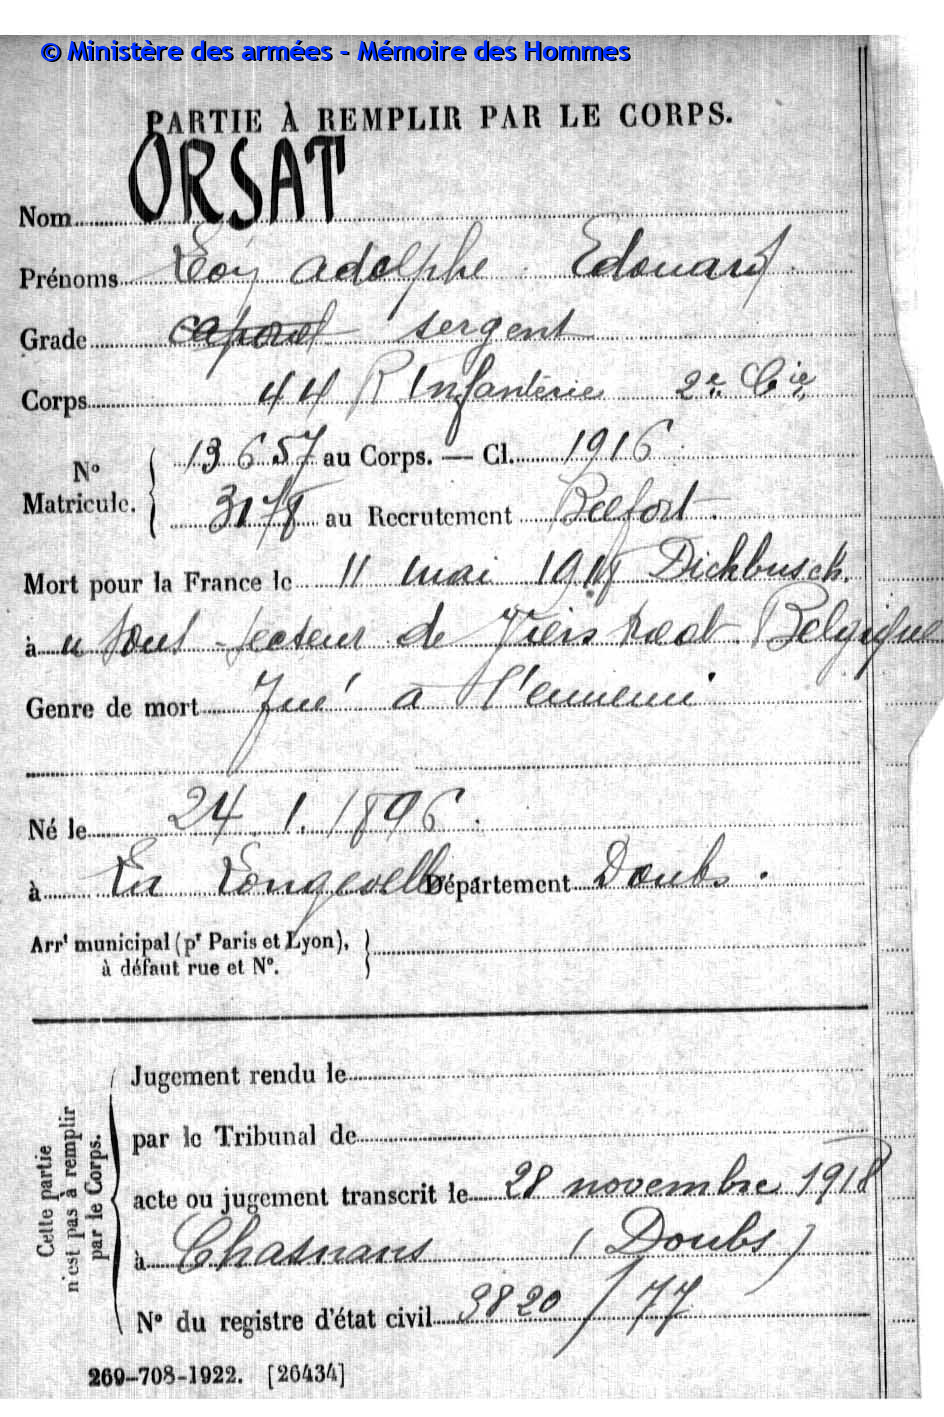 © Ministère des armées - Mémoire des Hommes
PARTIE À REMPLIR PAR LE CORPS.
Nom ORSAT
Prénoms Léon Adolphe Edouard
Grade caporal sergent
Corps 44 R Infanterie 2e Cie
N° Matricule. 13657 au Corps. — Cl. 1916
3178 au Recrutement Belfort.
Mort pour la France le 11 mai 1918 Dickbusch.
à Sous-secteur de Belgique
Genre de mort Tué à l'ennemi
Né le 24.1.1896.
à Département Doubs.
Arrt municipal (pr Paris et Lyon),
à défaut rue et N°.
Cette partie
n'est pas à remplir
par le Corps.
Jugement rendu le
par le Tribunal de
acte ou jugement transcrit le 28 novembre 1918
à Chasnans (Doubs)
N° du registre d'état civil 9820/77
269-708-1922. [26434]